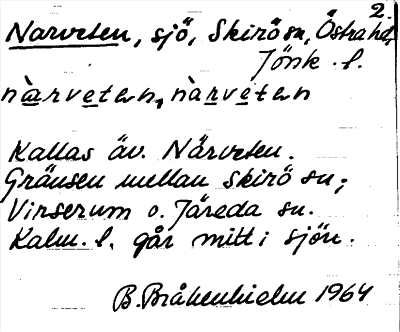 2.
Narveten, sjö, Skirö sn, Östra hd,
Jönk. l.
nàrveten, nàrveten
Kallas äv. Närveten.
Gränsen mellan Skirö sn;
Virserum o. Järeda sn.
Kalm. l. går mitt i sjön.
B. Bråkenhielm 1964